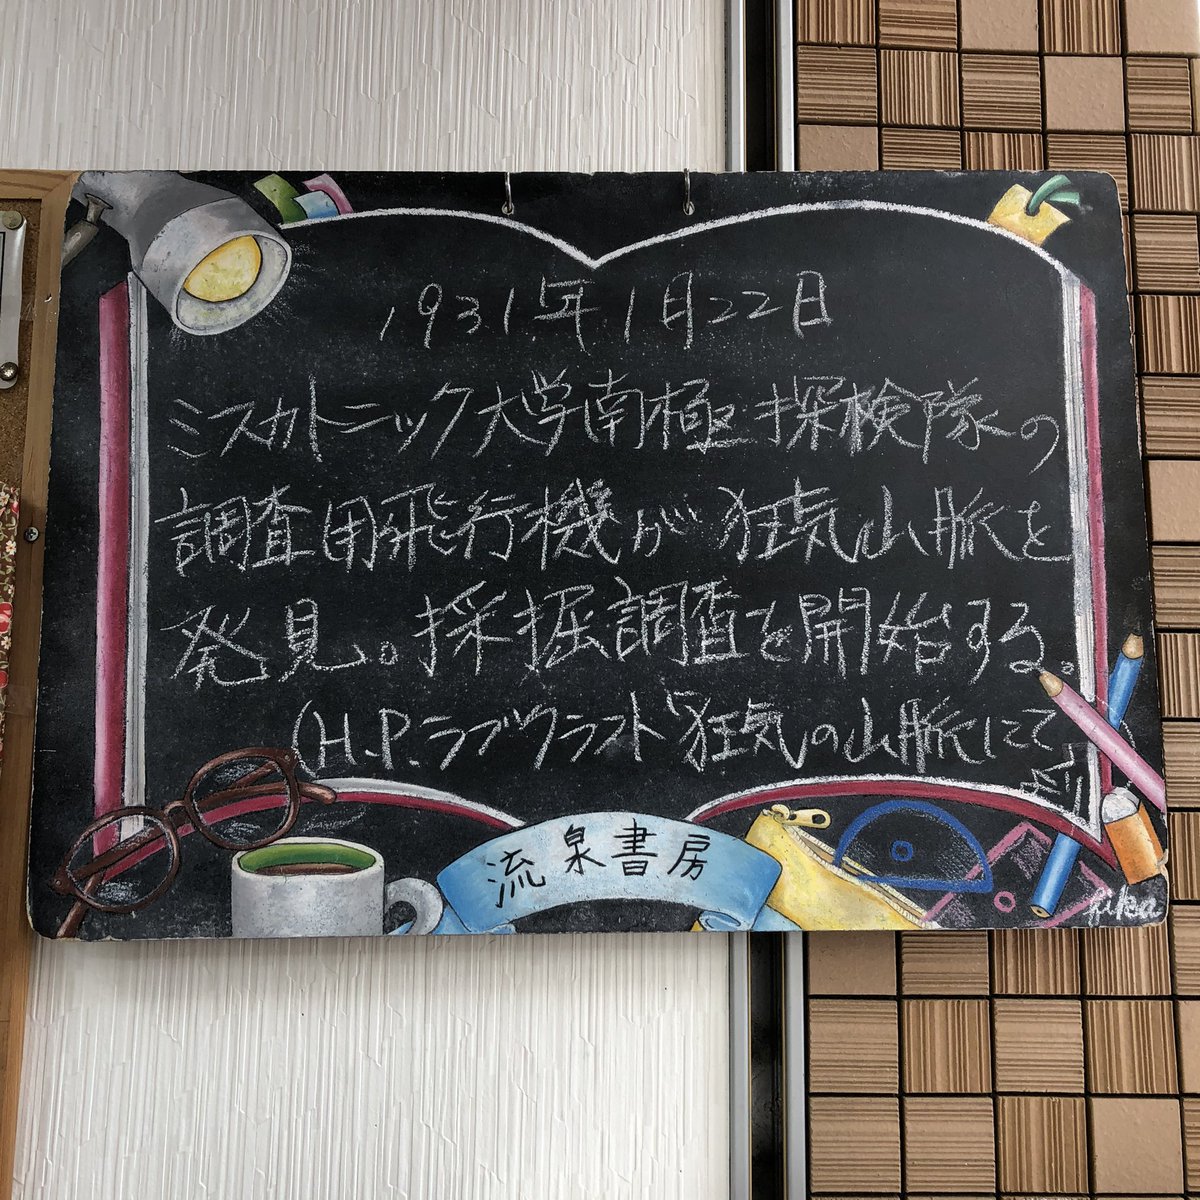 1931年1月22日
ミスカトニック大学南極探検隊の
調査用飛行機が狂気山脈を
発見。採掘調査を開始する。
(H.P.ラブクラフト「狂気の山脈にて」
より)
流泉書房
hika